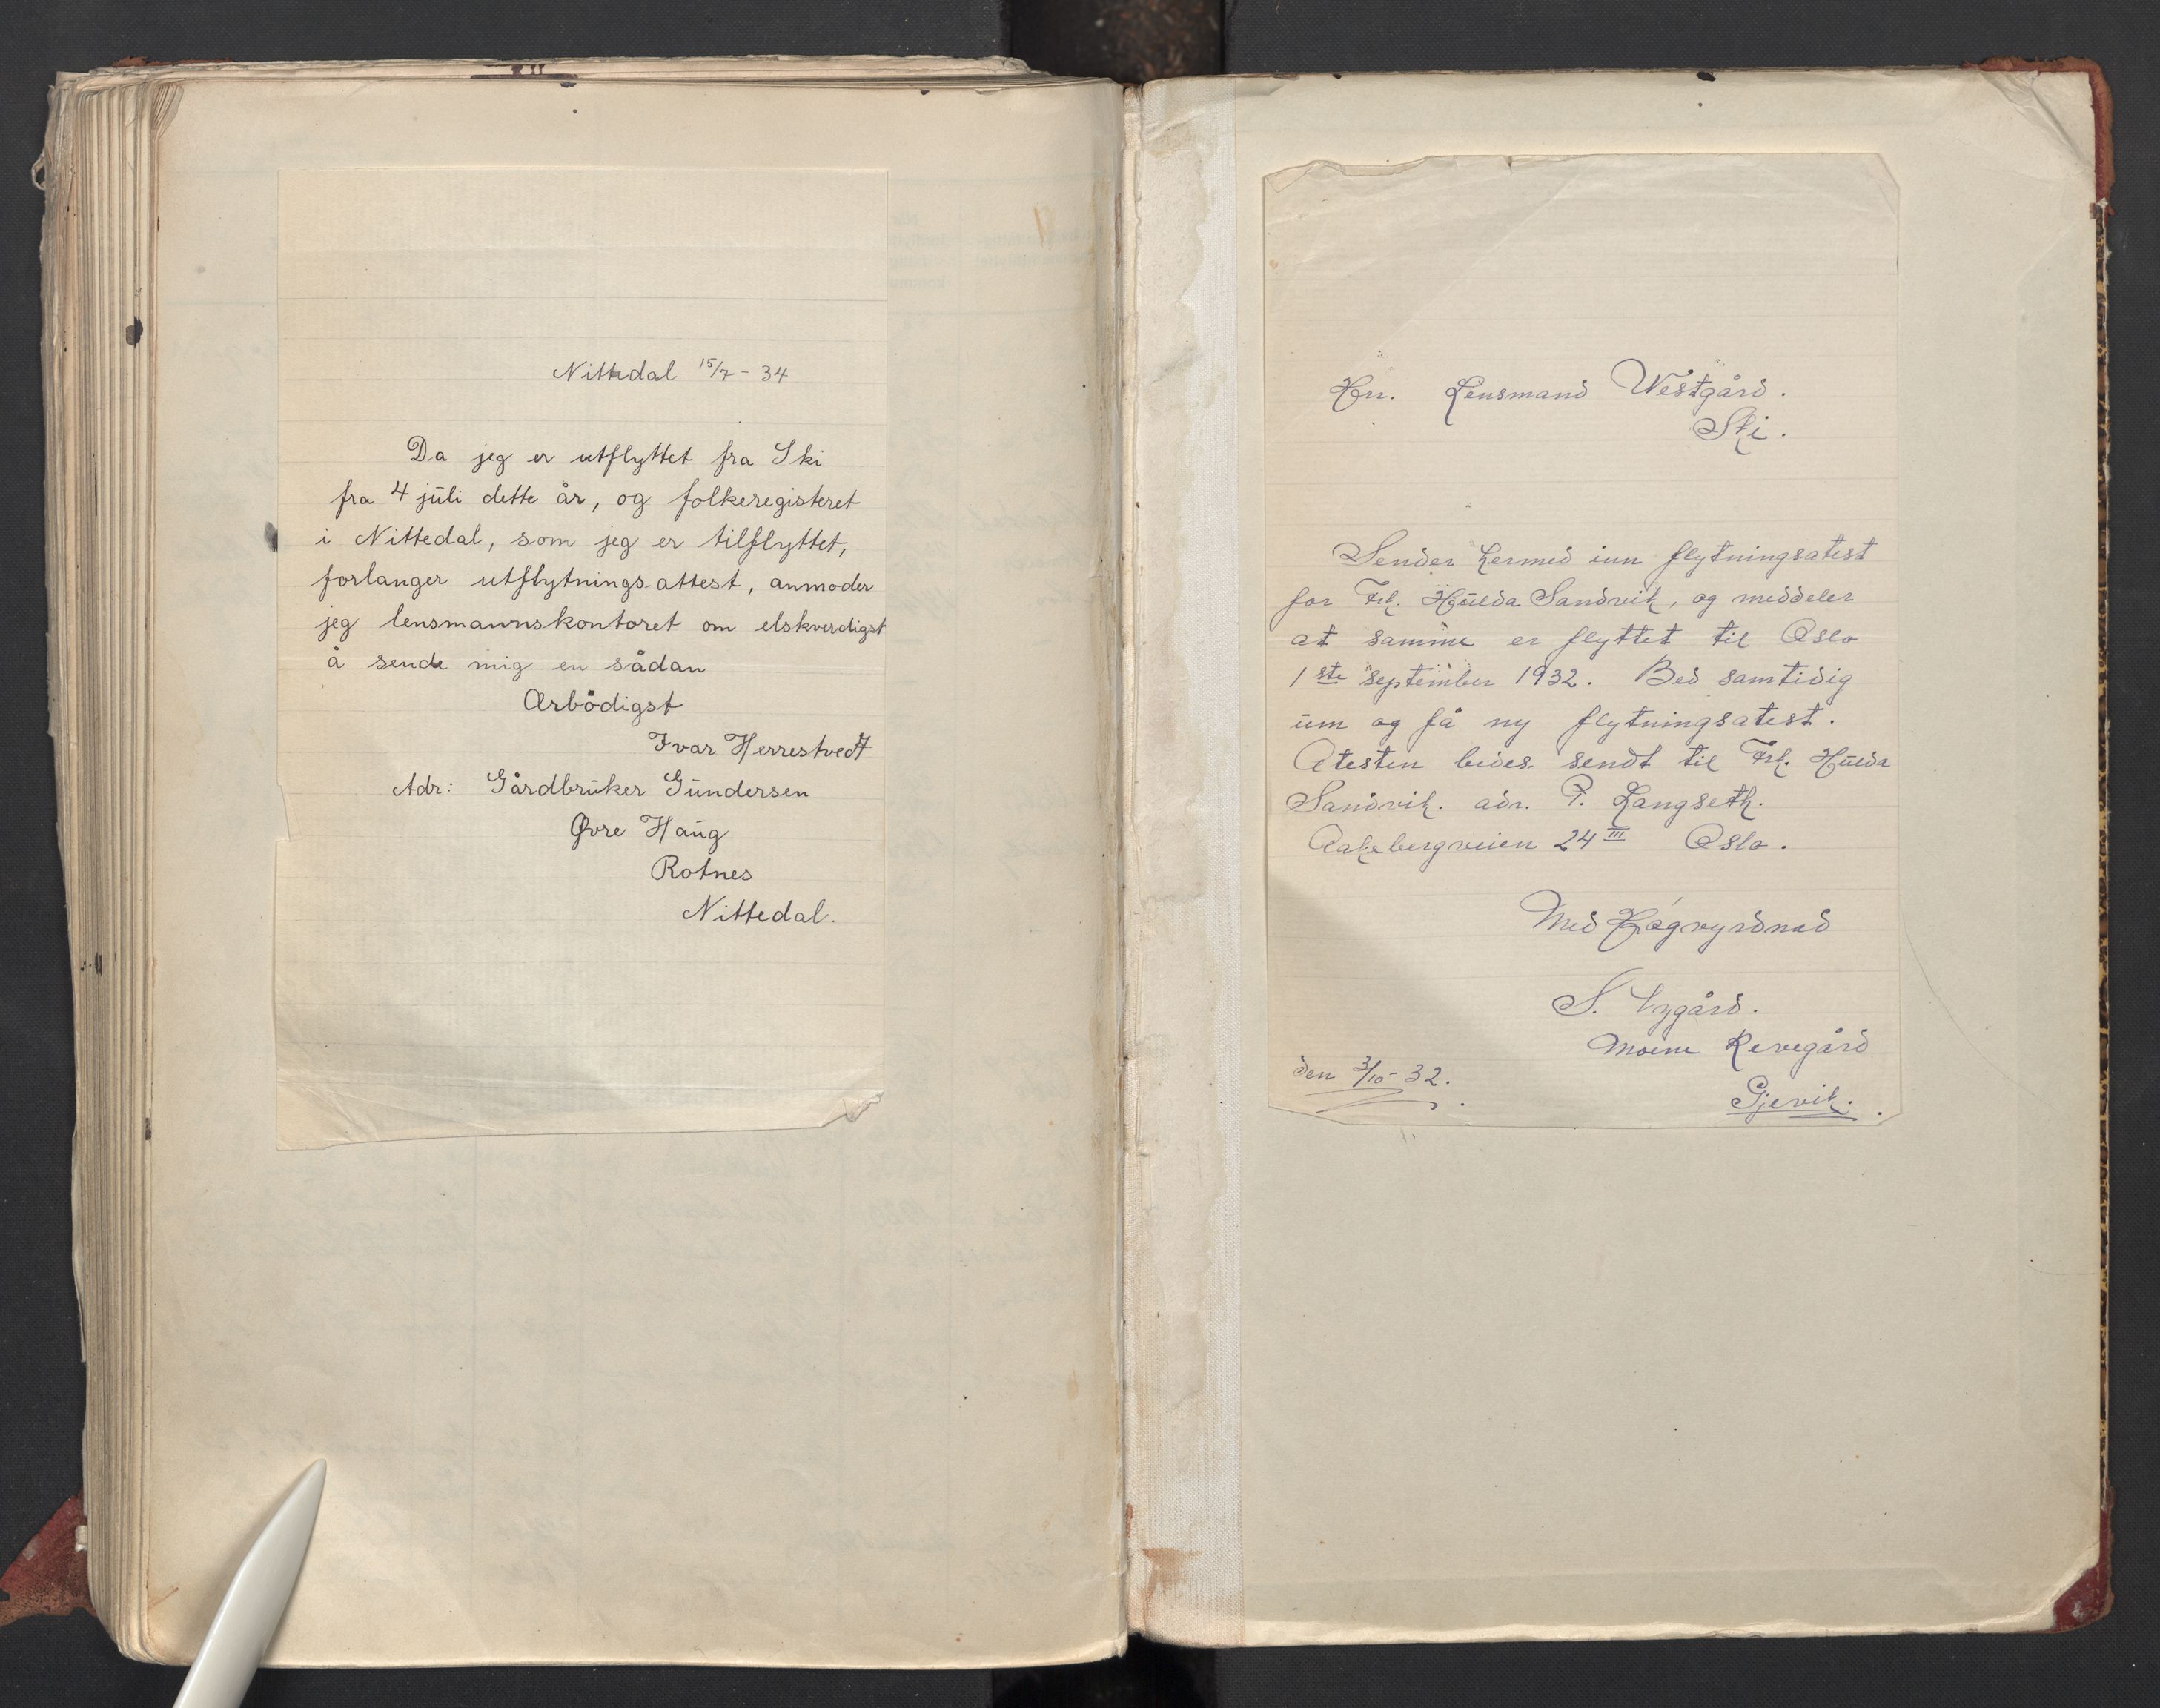 Nittedal 15/7 - 34
Da jeg er utflyttet fra Ski
fra 4 juli dette år, og folkeregisteret
i Nittedal, som jeg er tilflyttet,
forlanger utflytningsattest, anmoder
jeg lensmannskontoret om elskverdigst
å sende mig en sådan
Ærbödigst
Ivar Herrestvedt
Adr: Gårdbruker Gundersen
Øvre Haug
Rotnes
Nittedal.
Hrr. Lensmand Westgård.
Ski.
Sender hermed inn flytningsatest
for Frk. Hulda Sandvik, og meddeler
at samme er flyttet til Oslo
1ste september 1932. Bed samtidig
um og få ny flytningsatest.
Atesten bides sendt til Frk. Hulda
Sandvik. adr. P. Langseth.
Aakebergveien 24 III Oslo.
Med Høgvyrdnad
S.
Moene Revegård
den 3/10 - 32.
Gjøvik.